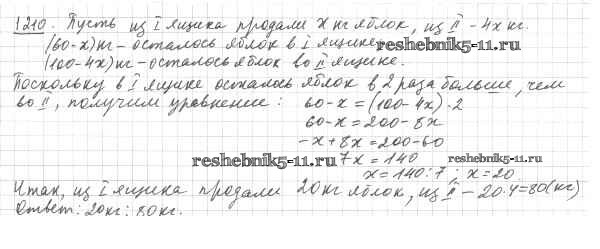 1210. Пусть из I ящика продали x кг яблок, из II - 4x кг.
(60-x) кг - осталось яблок в I ящике.
reshebnik5-11.ru
(100-4x) кг - осталось яблок во II ящике.
Поскольку в I ящике осталось яблок в 2 раза больше, чем
во II, получим уравнение: 60-x = (100-4x)·2
60-x = 200-8x
-x+8x = 200-60
reshebnik5-11.ru
7x = 140
reshebnik5-11.ru
x = 140:7; x = 20.
Итак, из I ящика продали 20 кг яблок, из II - 20·4=80 (кг)
Ответ: 20 кг; 80 кг.